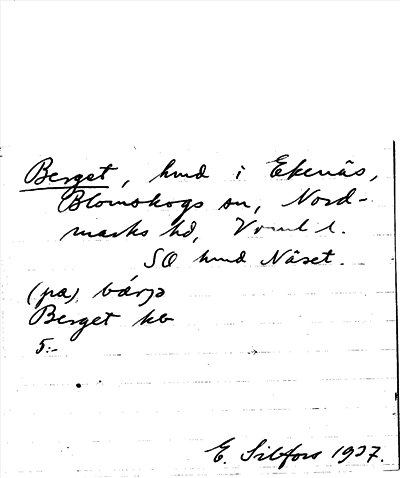 Berget, hmd i Ekenäs,
Blomskogs sn, Nord-
marks hd, Vrml l.
SO hmd Näset.
(på) bárjə
Berget kb
5:-
E. Sibfors 1927.